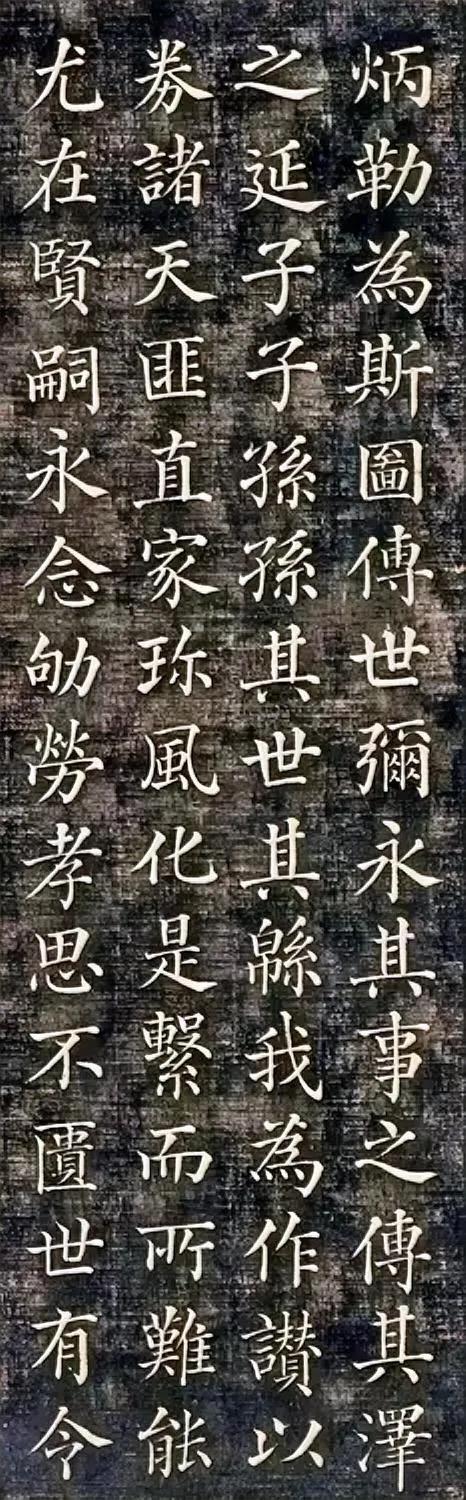 炳勒為斯圖傳世彌永其事之傳其澤
之延子子孫孫其世其緜我為作讃以
券諸天匪直家珎風化是繫而所難能
尤在賢嗣永念劬勞孝思不匱世有令